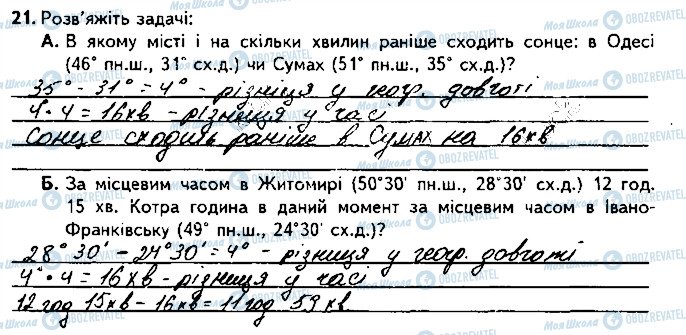 21. Розв'яжіть задачі:
А. В якому місті і на скільки хвилин раніше сходить сонце: в Одесі
(46° пн.ш., 31° сх.д.) чи Сумах (51° пн.ш., 35° сх.д.)?
35° - 31° = 4° - різниця у геогр. довготі
4 · 4 = 16 хв - різниця у часі
Сонце сходить раніше в Сумах на 16 хв
Б. За місцевим часом в Житомирі (50°30' пн.ш., 28°30' сх.д.) 12 год.
15 хв. Котра година в даний момент за місцевим часом в Івано-
Франківську (49° пн.ш., 24°30' сх.д.)?
28° 30' - 24° 30' = 4° - різниця у геогр. довготі
4° · 4 = 16 хв - різниця у часі
12 год 15 хв - 16 хв = 11 год 59 хв.